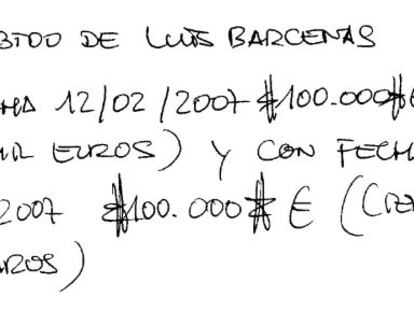 BIDO DE LUIS BARCENAS
HA 12/02/2007 #100.000# €
MIL EUROS) Y CON FECH
2007 #100.000# € (CIEN
UROS)